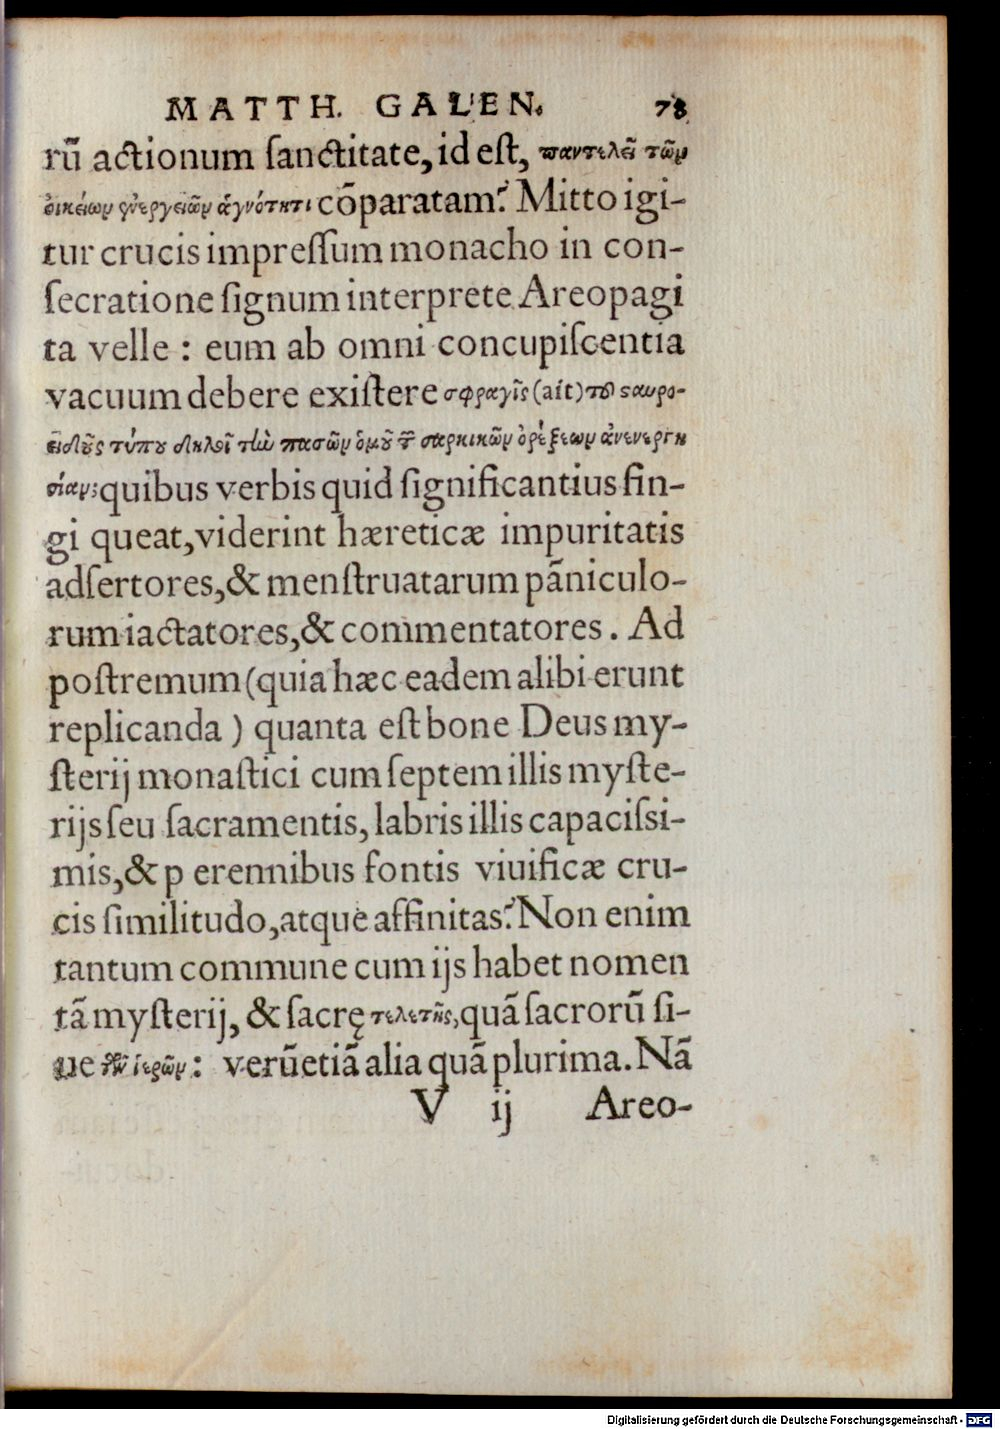 MATTH. GALEN. 78
rū actionum ſanctitate, id eſt, παντελεῖ τῶν
οἰκείων ἐνεργειῶν ἁγνότητι cōparatam? Mitto igi-
tur crucis impreſſum monacho in con-
ſecratione ſignum interprete Areopagi
ta velle : eum ab omni concupiſcentia
vacuum debere exiſtere σφραγῖς (ait) τοῦ ϛαυρο-
ειδοῦς τύπου δηλοῖ τὼ πασῶν ὁμοῦ τ῀ σαρκικῶν ὀρέξεων ἀνενεργη
σίαν: quibus verbis quid ſignificantius fin-
gi queat, viderint hæreticæ impuritatis
adſertores, & menſtruatarum pāniculo-
rum iactatores, & commentatores. Ad
poſtremum (quia hæc eadem alibi erunt
replicanda) quanta eſt bone Deus my-
ſterij monaſtici cum ſeptem illis myſte-
rijs ſeu ſacramentis, labris illis capaciſsi-
mis, & p erennibus fontis viuificæ cru-
cis ſimilitudo, atque affinitas? Non enim
tantum commune cum ijs habet nomen
tā myſterij, & ſacrę τελετῆς, quā ſacrorū ſi-
ue τῶν ἱερῶν: verū etiā alia quā plurima. Nā
V ij Areo-
Digitalisierung gefördert durch die Deutsche Forschungsgemeinschaft - DFG